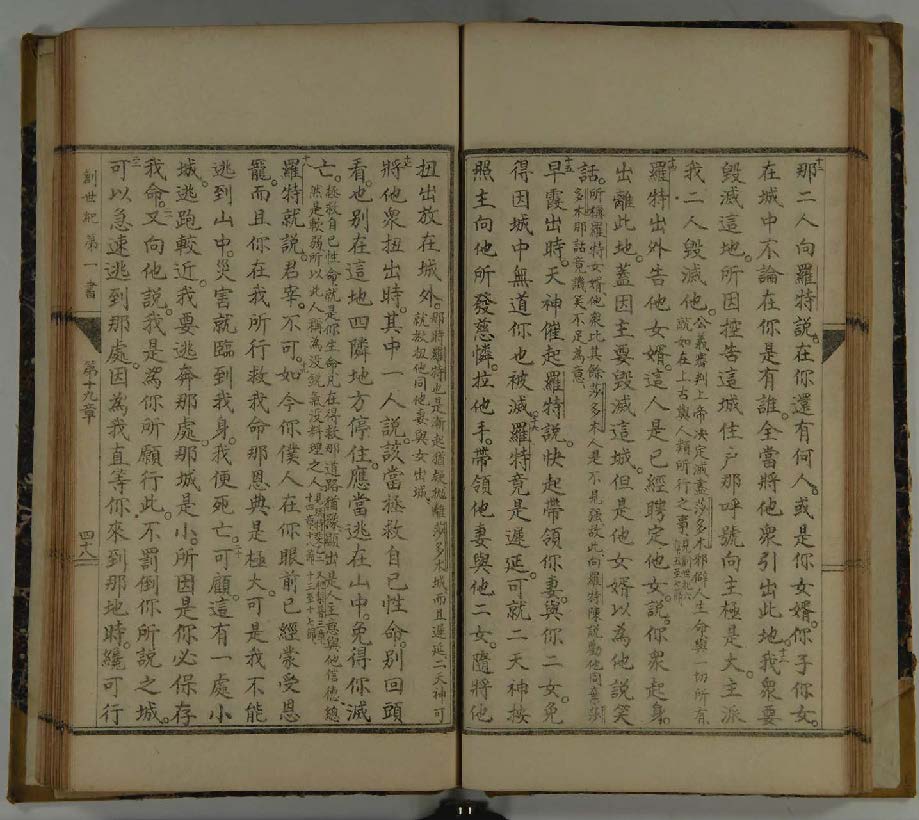 十二那二人向羅特說。在你還有何人。或是你女婿。你子你女。
在城中不論在你是有誰。全當將他衆引出此地。十三我衆要
毀滅這地。所因控告這城住戶那呼號向主極是大。主派
我二人毀滅他。公義審判上帝決定滅盡莎多木邪僻人生命與一切所有
就如在上古裏人類所行之事
十四羅特出外。告他女婿。這人是已經聘定他女。說。你衆起身。
出離此地。蓋因主要毀滅這城。但是他女婿以為他說笑
話。所稱羅特女婿他衆比其餘莎多木人是不見強。故此向羅特陳說勸他同棄莎
多木那話竟譏笑不足為意。
十五早霞出時。天神催起羅特說。快起帶領你妻與你二女。免
得因城中無道你也被滅。十六羅特竟是遲延。可就二天神按
照主向他所發慈憐。拉他手。帶領他妻與他二女。隨將他
扭出放在城外。那時羅特也是漸起猶疑離莎多木城而且遲延二天神可
就扐扭他同他妻與女出城
十七將他衆扭出時。其中一人說。該當拯救自己性命。別回頭
看。也別在這地四隣地方停住。應當逃在山中。免得你滅
亡。拯救自己性命就是你生命凡在得救那道路猶豫顯出是人主意與他信德總
然是軟弱所以此人稱為没銳氣没料理之人
十八羅特就說。君宰。不可。十九如今你僕人在你眼前已經蒙受恩
寵。而且你在我所行救我命那恩典是極大。可是我不能
逃到山中。災害就臨到我身。我便死亡。二十可顧。這有一處小
城。逃跑較近。我要逃奔那處。那城是小。所因是你必保存
我命。二一又向他說。我是為你所願行此。不罰倒你所說之城。
二二可以急速逃到那處。因為我直等你來到那地時。纔可行
創世紀第一書
第十九章
四十八